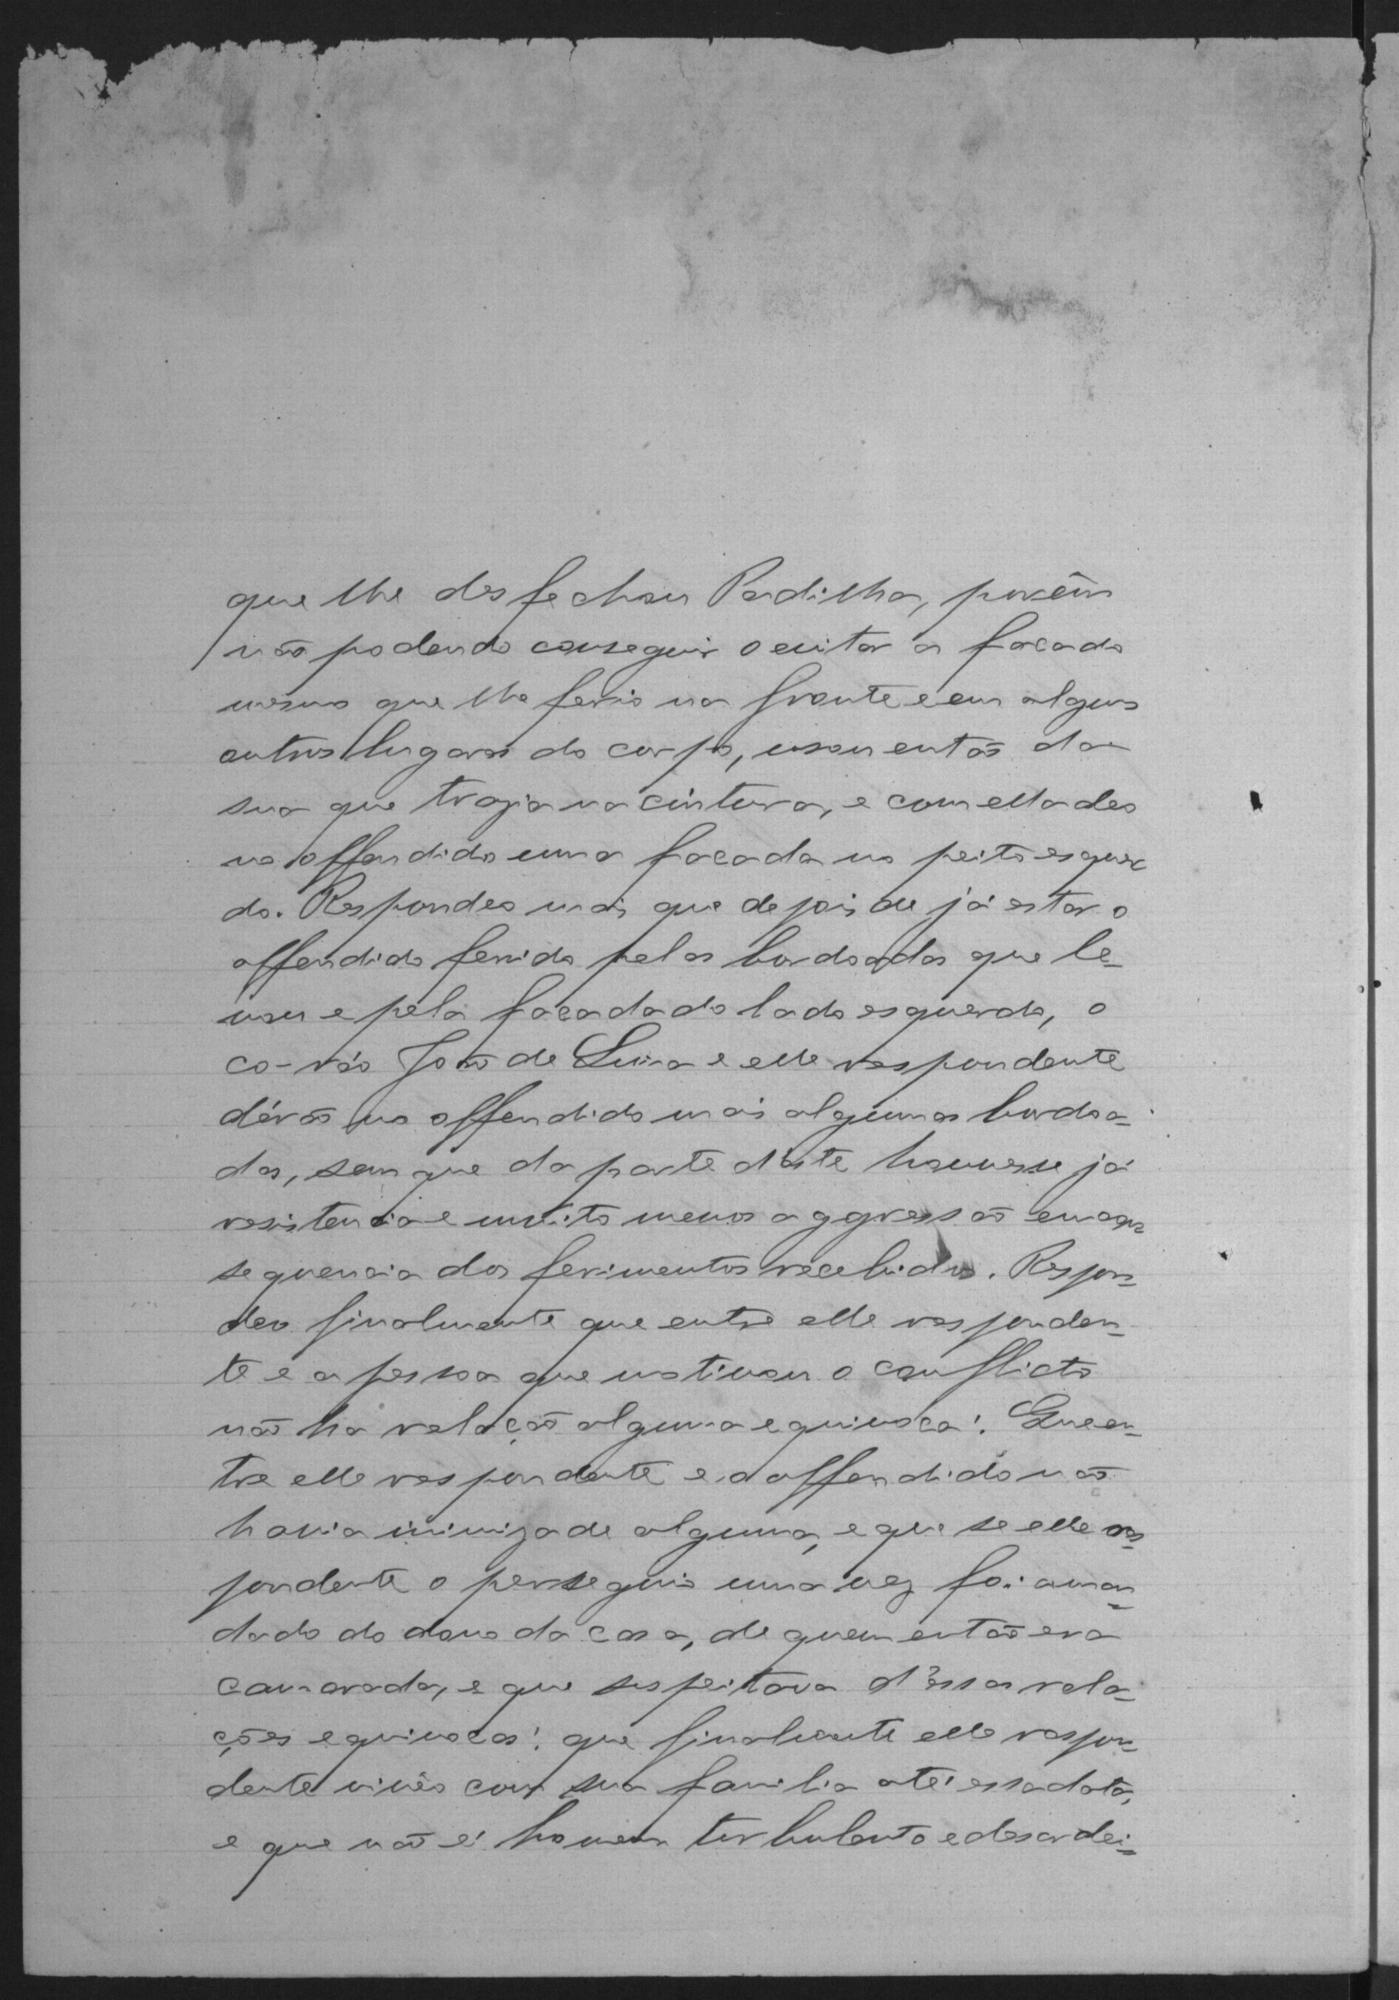 que lhe desfechou Padilha, porêm
não podendo conseguir o evitar a facada
mesmo que lhe ferio na fronte e em alguns
outros lugares do corpo, usou então da
sua que trazia na cintura, e com ella deo
no offendido uma facada no peito esquer
do. Respondeo mais que depois de já estar o
offendido ferido pelas bordoadas que le-
vou e pela facada do lado esquerdo, o
co-réo João de Lima e elle respondente
dérão no offendido mais algumas bordoa-
das, sem que da parte d'este houvesse já
resistencia e muito menos aggressão em con
sequencia dos ferimentos recebidos. Respon-
deo finalmente que entre elle responden-
te e a pessoa que motivou o conflicto
não ha relação alguma equivoca: Que en-
tre elle respondente e o offendido não
havia inimizade alguma, e que se elle res-
pondente o perseguio uma vez foi a man-
dado do dono da casa, de quem então era
camarada, e que suspeitava d'essas rela-
ções equivocas: que finalmente elle respon-
dente viveo com sua familia até essa data,
e que não é homem turbulento e desordei-